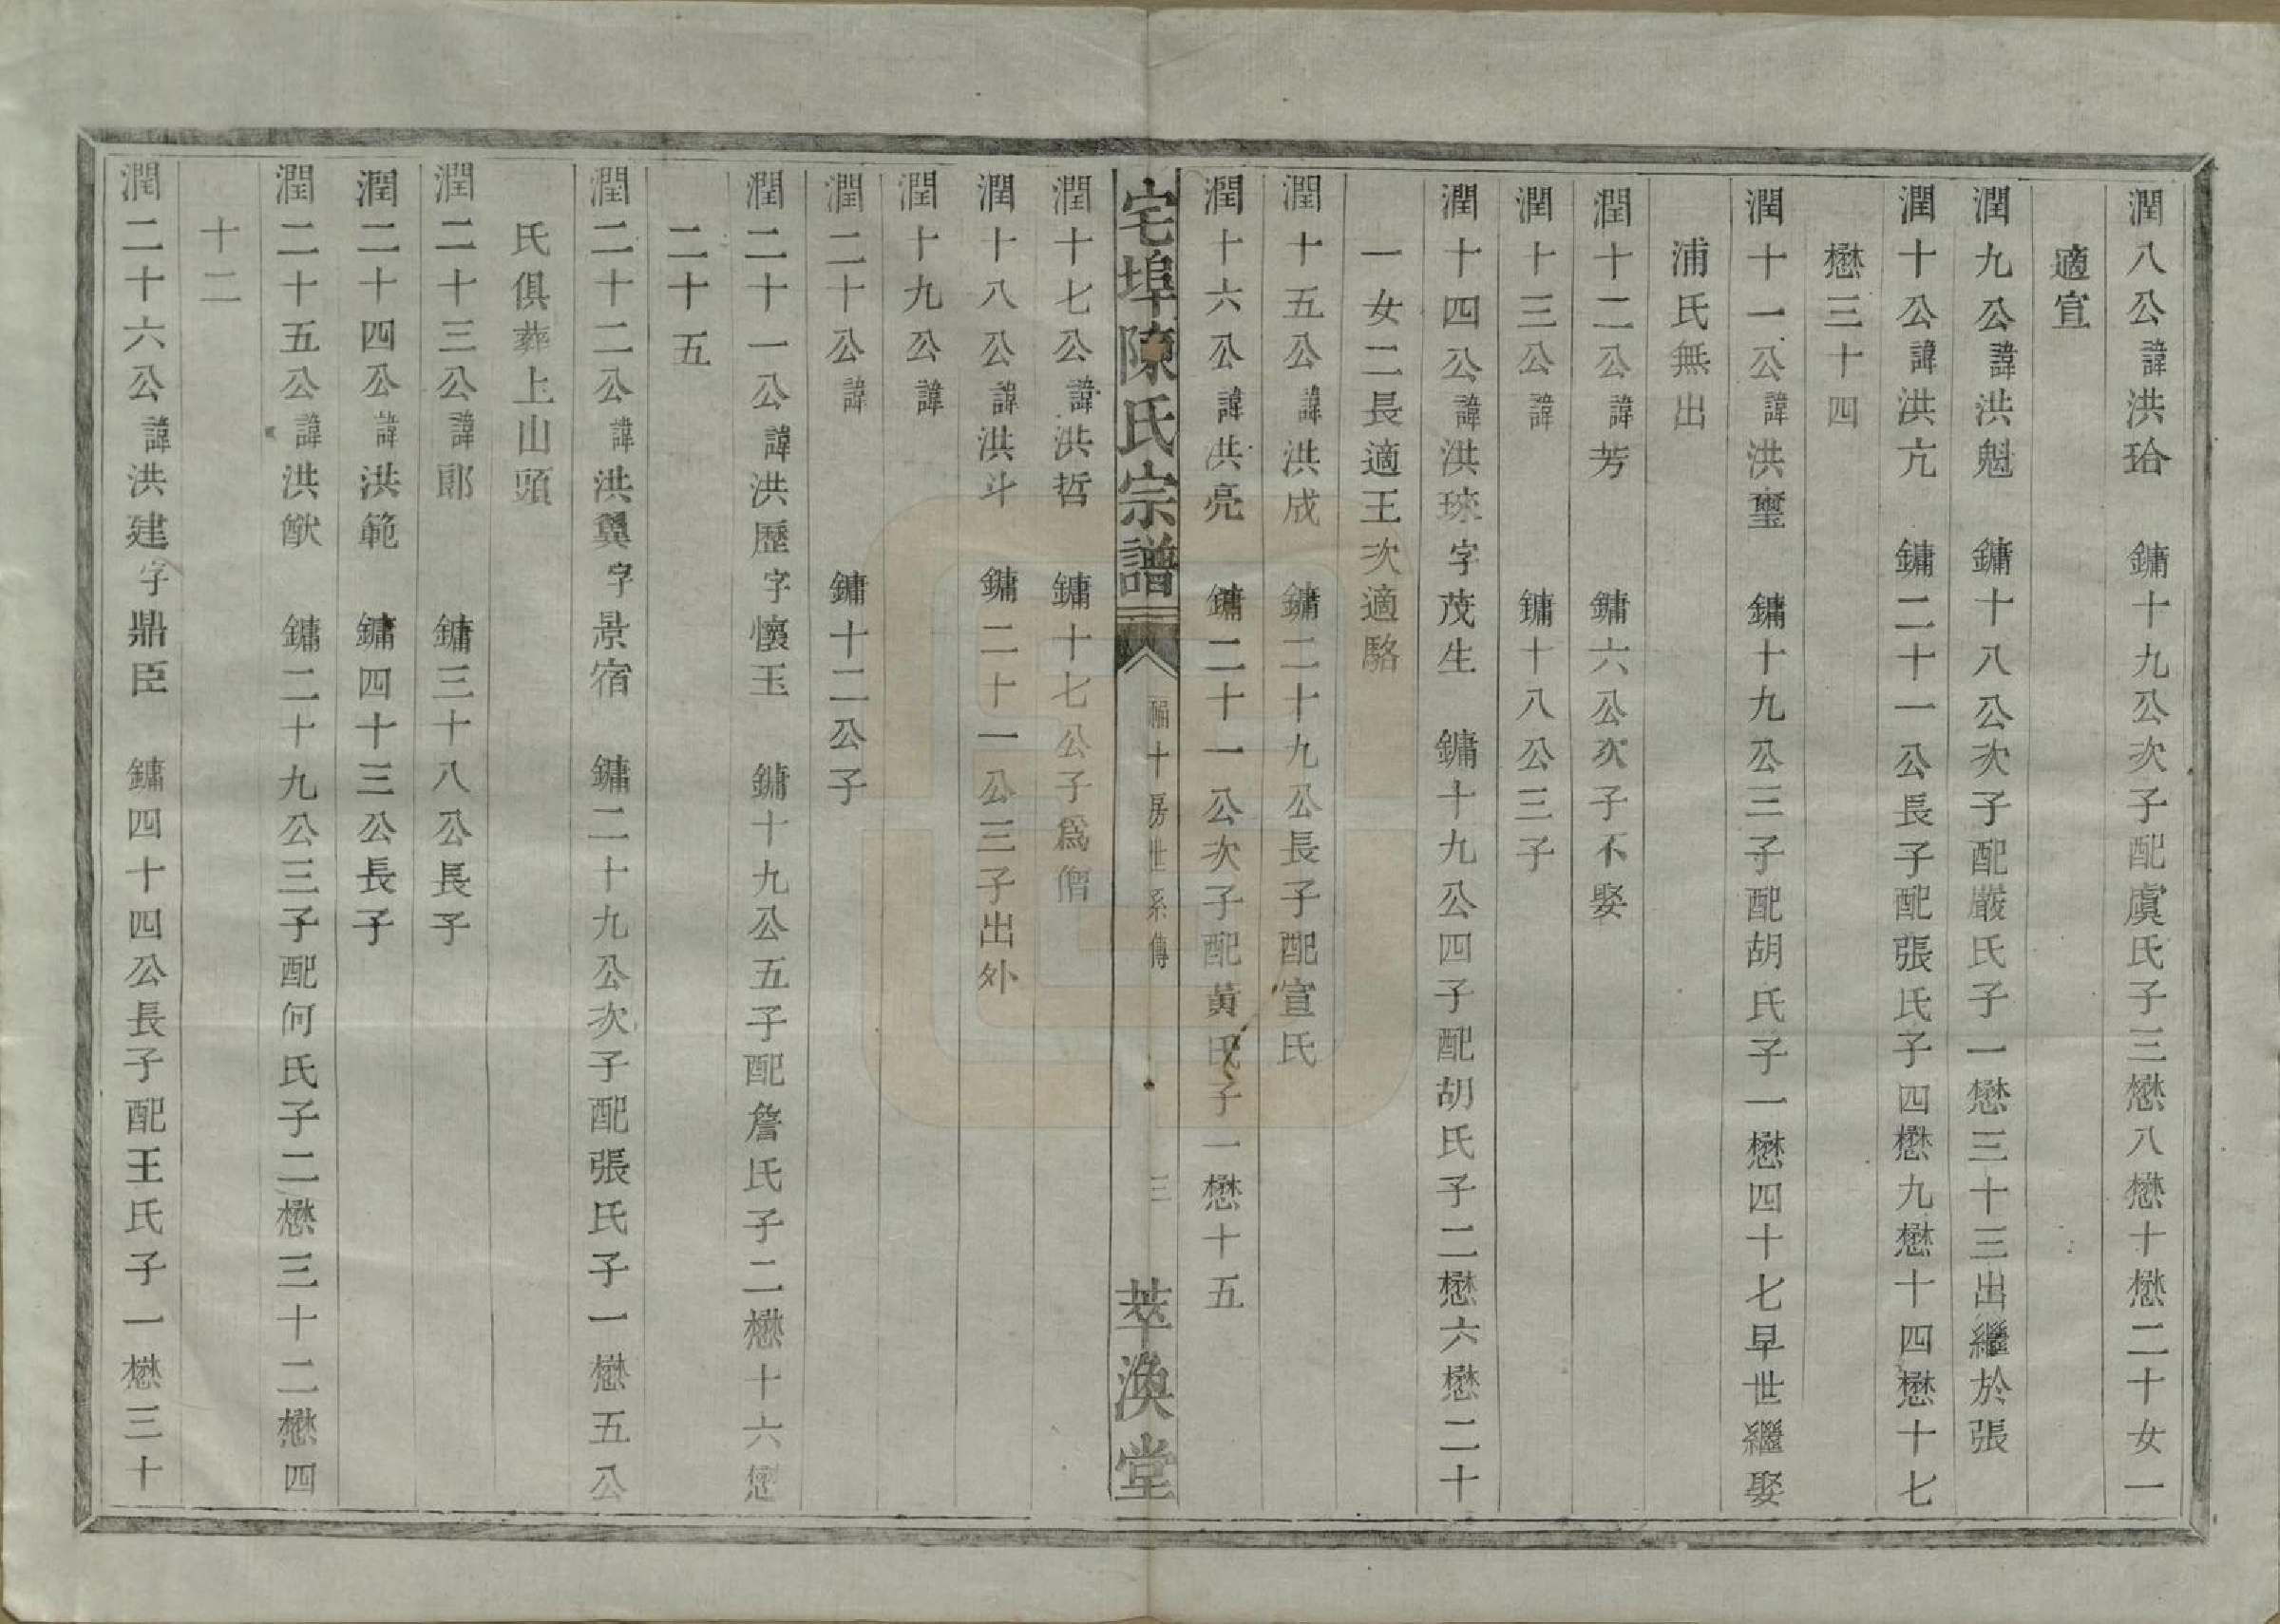 潤八公諱洪珆　鏞十九公次子配虞氏子三懋八懋十懋二十女一
適宣
潤九公諱洪魁　鏞十八公次子配嚴氏子一懋三十三出繼於張
潤十公諱洪亢　鏞二十一公長子配張氏子四懋九懋十四懋十七
懋三十四
潤十一公諱洪璽　鏞十九公三子配胡氏子一懋四十七早世繼娶
浦氏無出
潤十二公諱芳　鏞六公次子不娶
潤十三公諱　鏞十八公三子
潤十四公諱洪琜字茂生　鏞十九公四子配胡氏子二懋六懋二十
一女二長適王次適駱
潤十五公諱洪成　鏞二十九公長子配宣氏
潤十六公諱洪亮　鏞二十一公次子配黃氏子一懋十五
宅埠陳氏宗譜　福十房世系傳　三　萃渙堂
潤十七公諱洪哲　鏞十七公子爲僧
潤十八公諱洪斗　鏞二十一公三子出外
潤十九公諱
潤二十公諱　鏞十二公子
潤二十一公諱洪歷字懷玉　鏞十九公五子配詹氏子二懋十六懋
二十五
潤二十二公諱洪翼字景宿　鏞二十九公次子配張氏子一懋五公
氏俱葬上山頭
潤二十三公諱郞　鏞三十八公長子
潤二十四公諱洪範　鏞四十三公長子
潤二十五公諱洪猷　鏞二十九公三子配何氏子二懋三十二懋四
十二
潤二十六公諱洪建字鼎臣　鏞四十四公長子配王氏子一懋三十